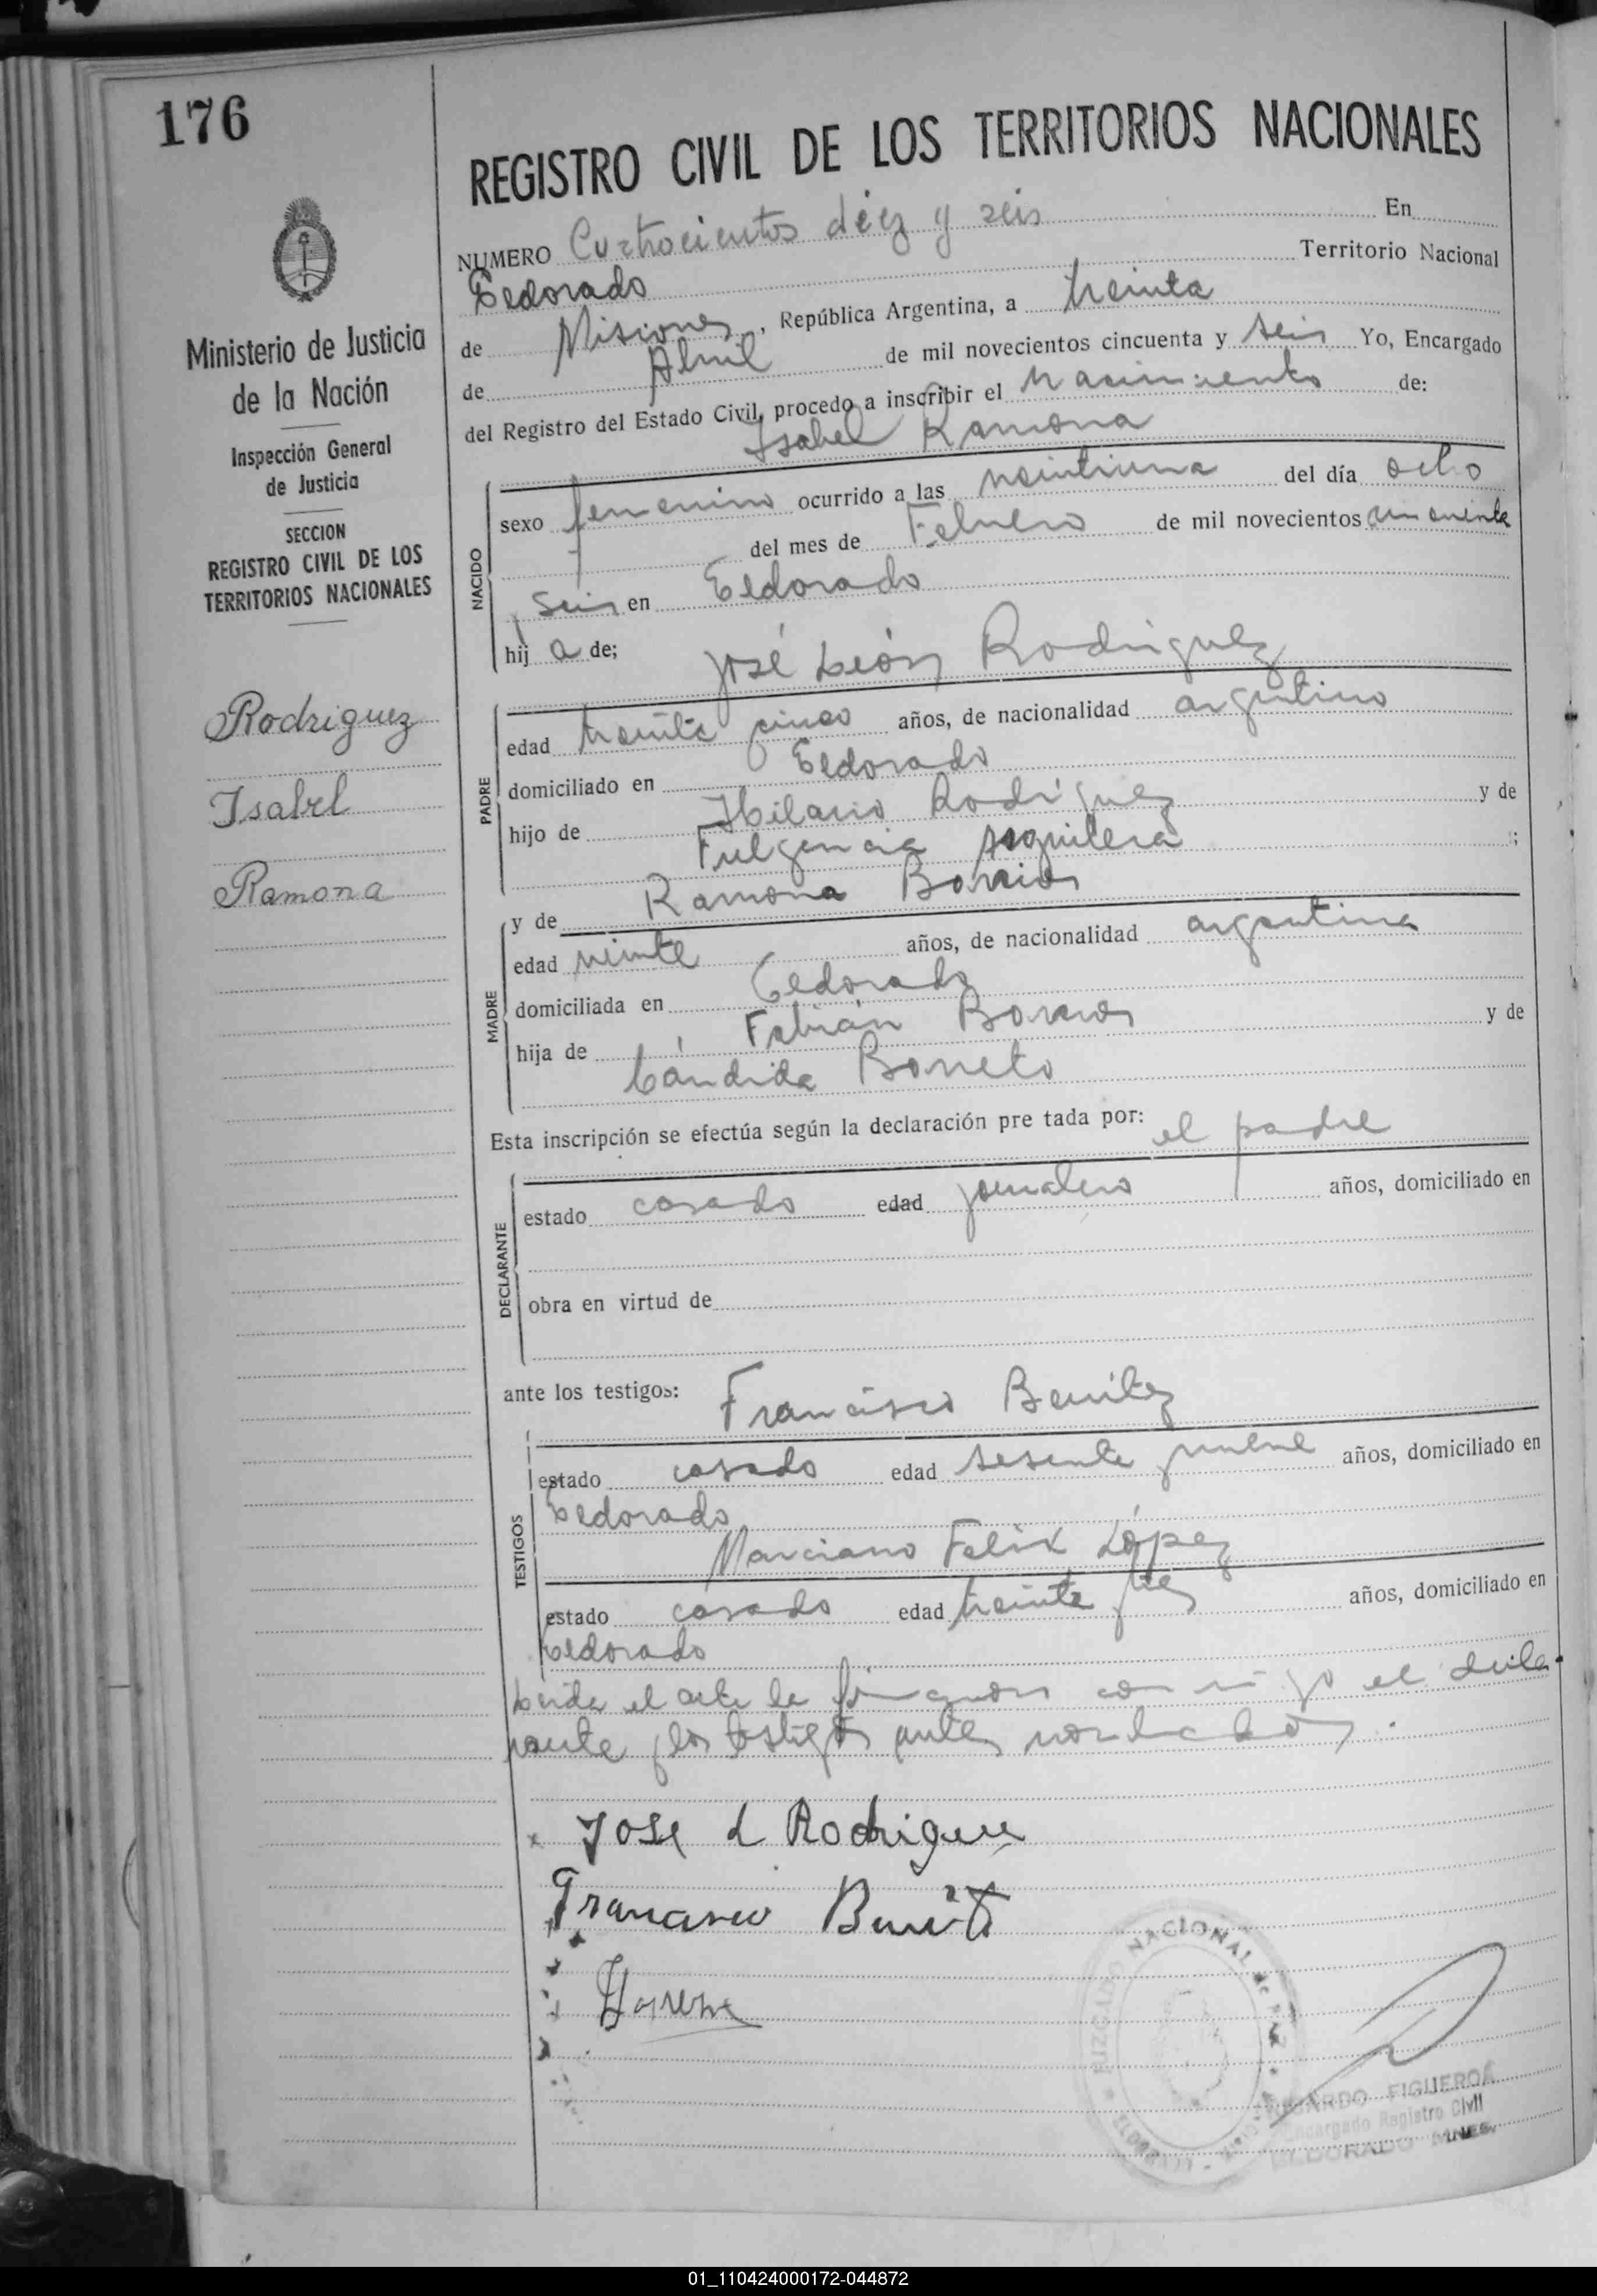 176
REGISTRO CIVIL DE LOS TERRITORIOS NACIONALES
NUMERO Cuatrocientos diez y seis En
Eldorado Territorio Nacional
de Misiones, República Argentina, a treinta
de Abril de mil novecientos cincuenta y seis Yo, Encargado
del Registro del Estado Civil, procedo a inscribir el nacimiento de:
Isabel Ramona
Ministerio de Justicia
de la Nación
Inspección General
de Justicia
SECCION
REGISTRO CIVIL DE LOS
TERRITORIOS NACIONALES
Rodriguez
Isabel
Ramona
NACIDO
sexo femenino ocurrido a las veintiuna del día ocho
del mes de Febrero de mil novecientos cincuenta
y seis en Eldorado
hij a de;
José León Rodriguez
PADRE
edad treinta y cinco años, de nacionalidad argentino
domiciliado en Eldorado
hijo de Hilario Rodríguez y de
Fulgencia Aguilera ;
y de Ramona Barrios
MADRE
edad veinte años, de nacionalidad argentina
domiciliada en Eldorado
hija de Fabián Barrios y de
Cándida Borreto
Esta inscripción se efectúa según la declaración pre tada por: el padre
DECLARANTE
estado casado edad jornalero años, domiciliado en
obra en virtud de
ante los testigos: Francisco Benítez
TESTIGOS
estado casado edad sesenta y nueve años, domiciliado en
Eldorado
Marciano Felix López
estado casado edad treinta y tres años, domiciliado en
Eldorado
Leida el acta la firmaron conmigo el decla-
rante y los testigos antes nombrados.
x Jose L Rodriguez
Francisco Benitez
JUZGADO NACIONAL DE PAZ
FIGUEROA
Encargado Registro Civil
ELDORADO MNES.
01_110424000172-044872